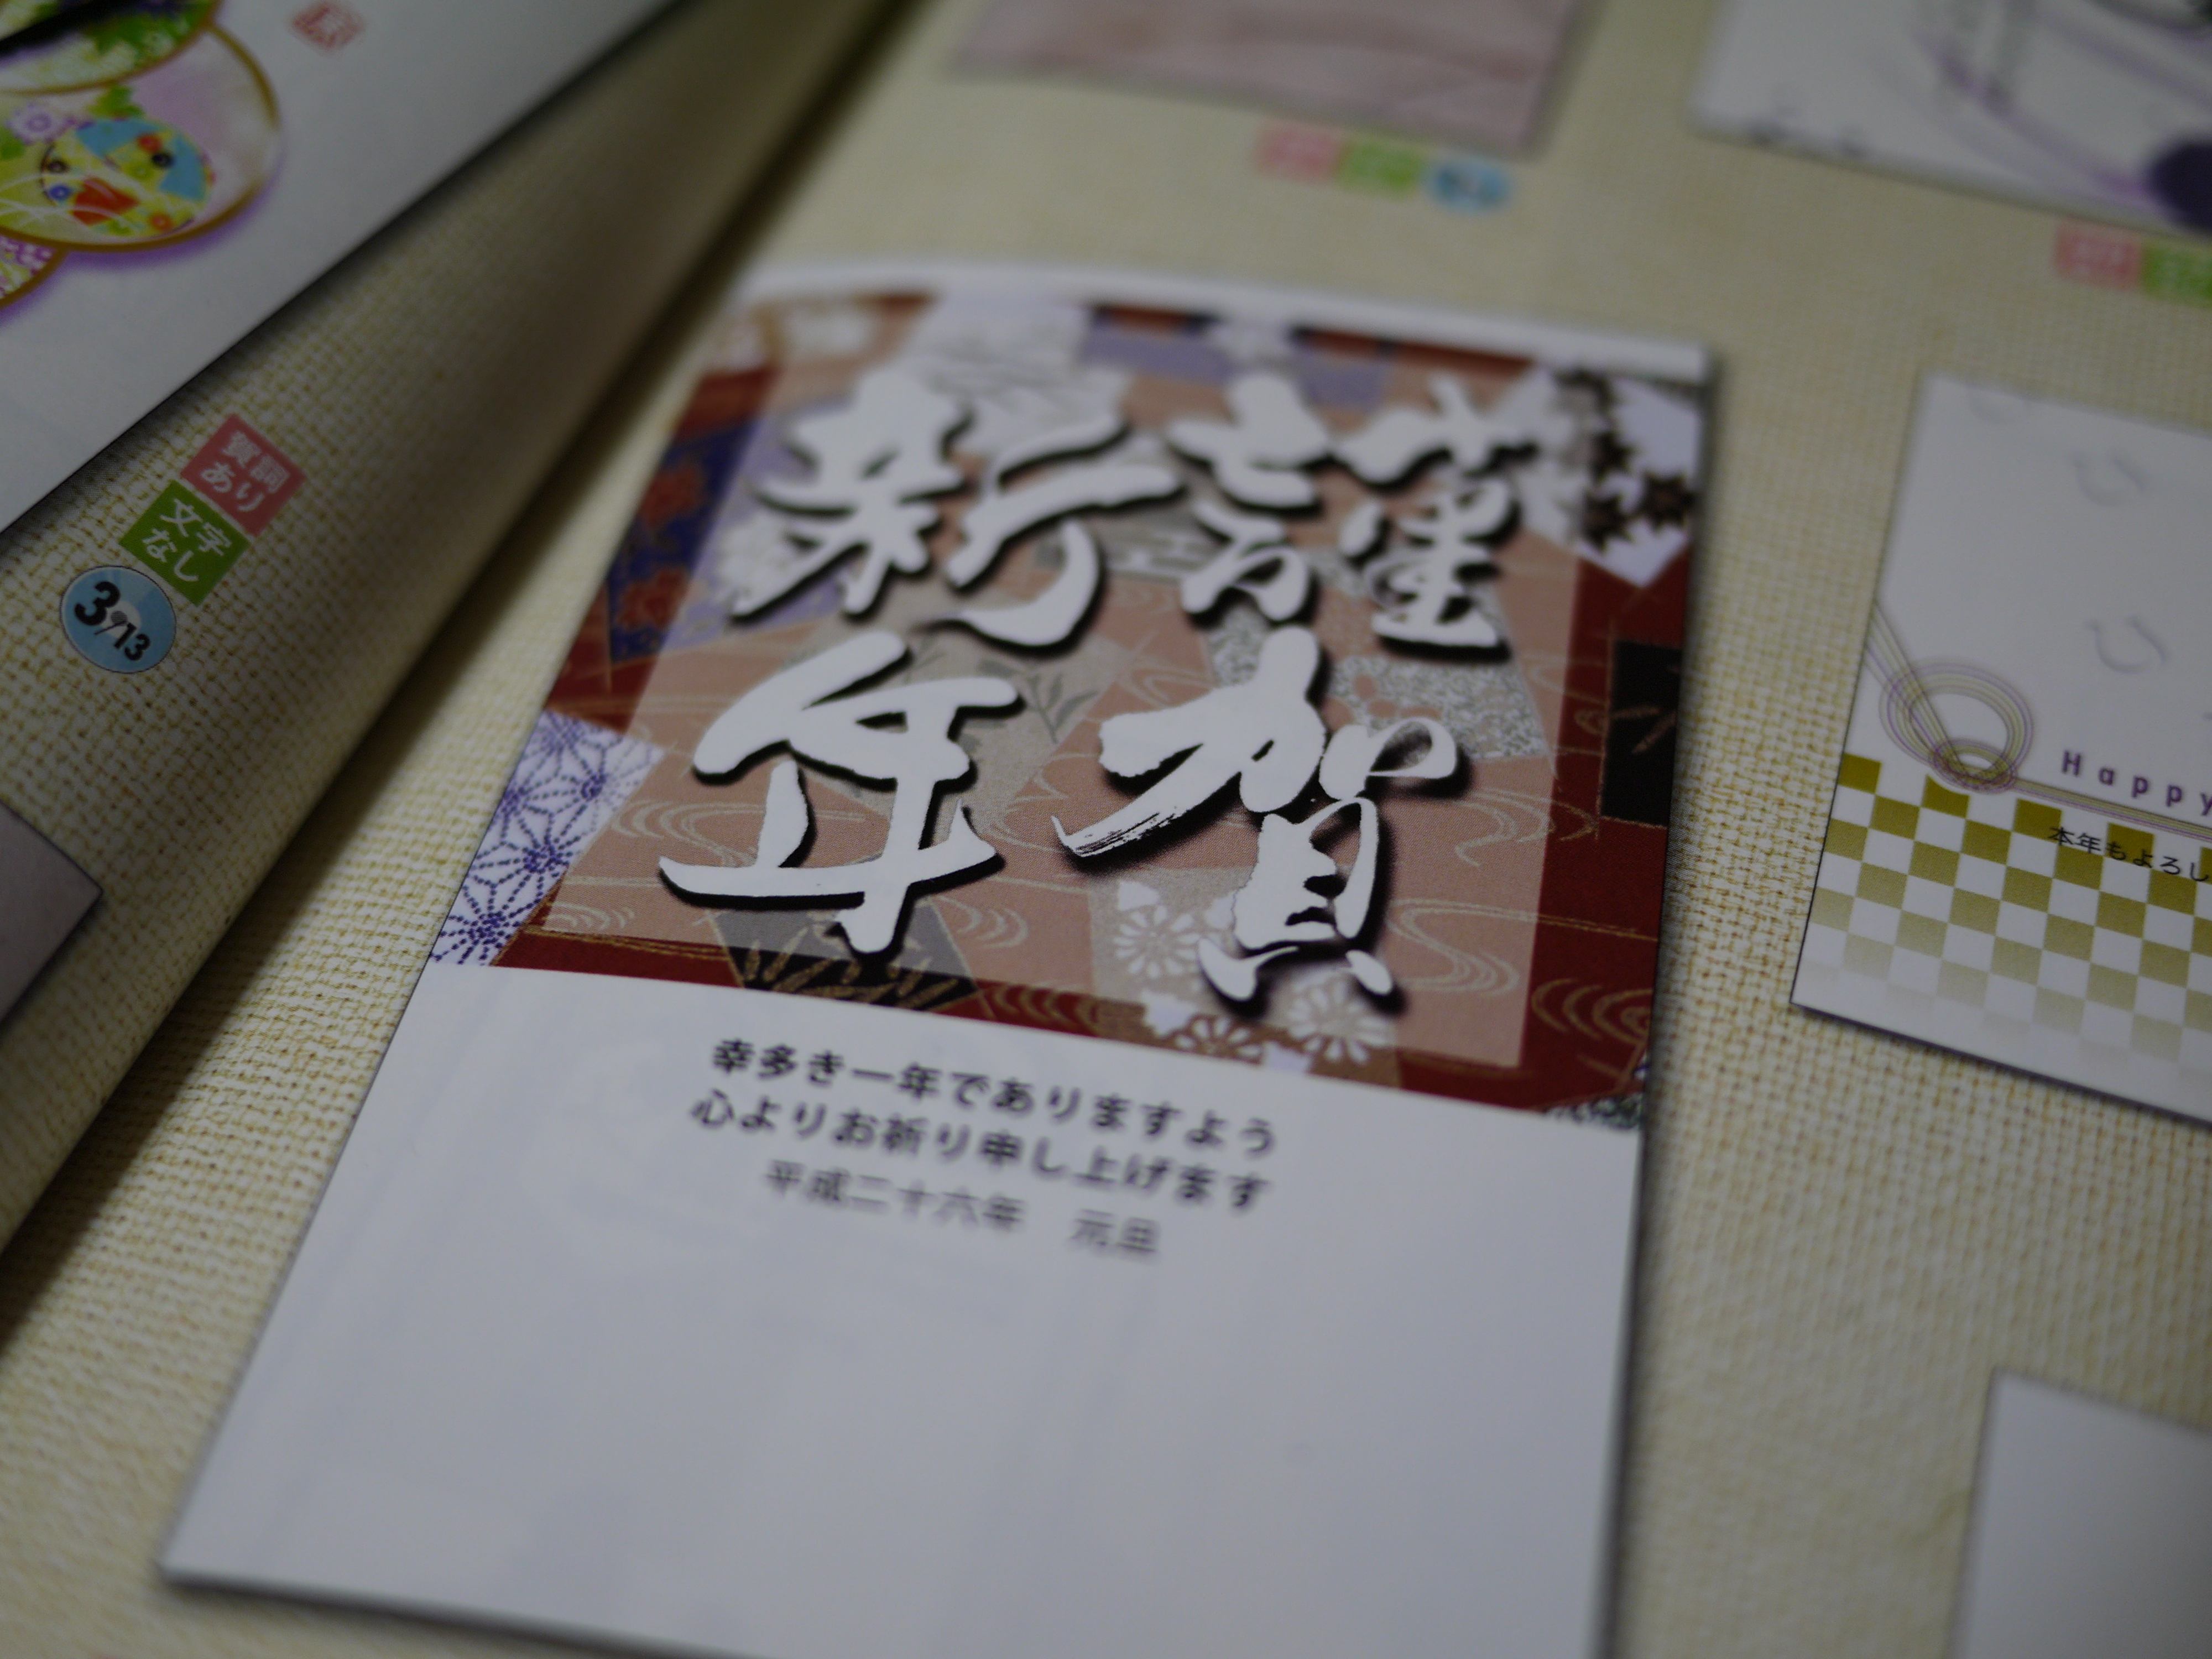 謹賀
新年
幸多き一年でありますよう
心よりお祈り申し上げます
平成二十六年　元旦
賀詞
あり
文字
なし
3/13
Happy
本年もよろし